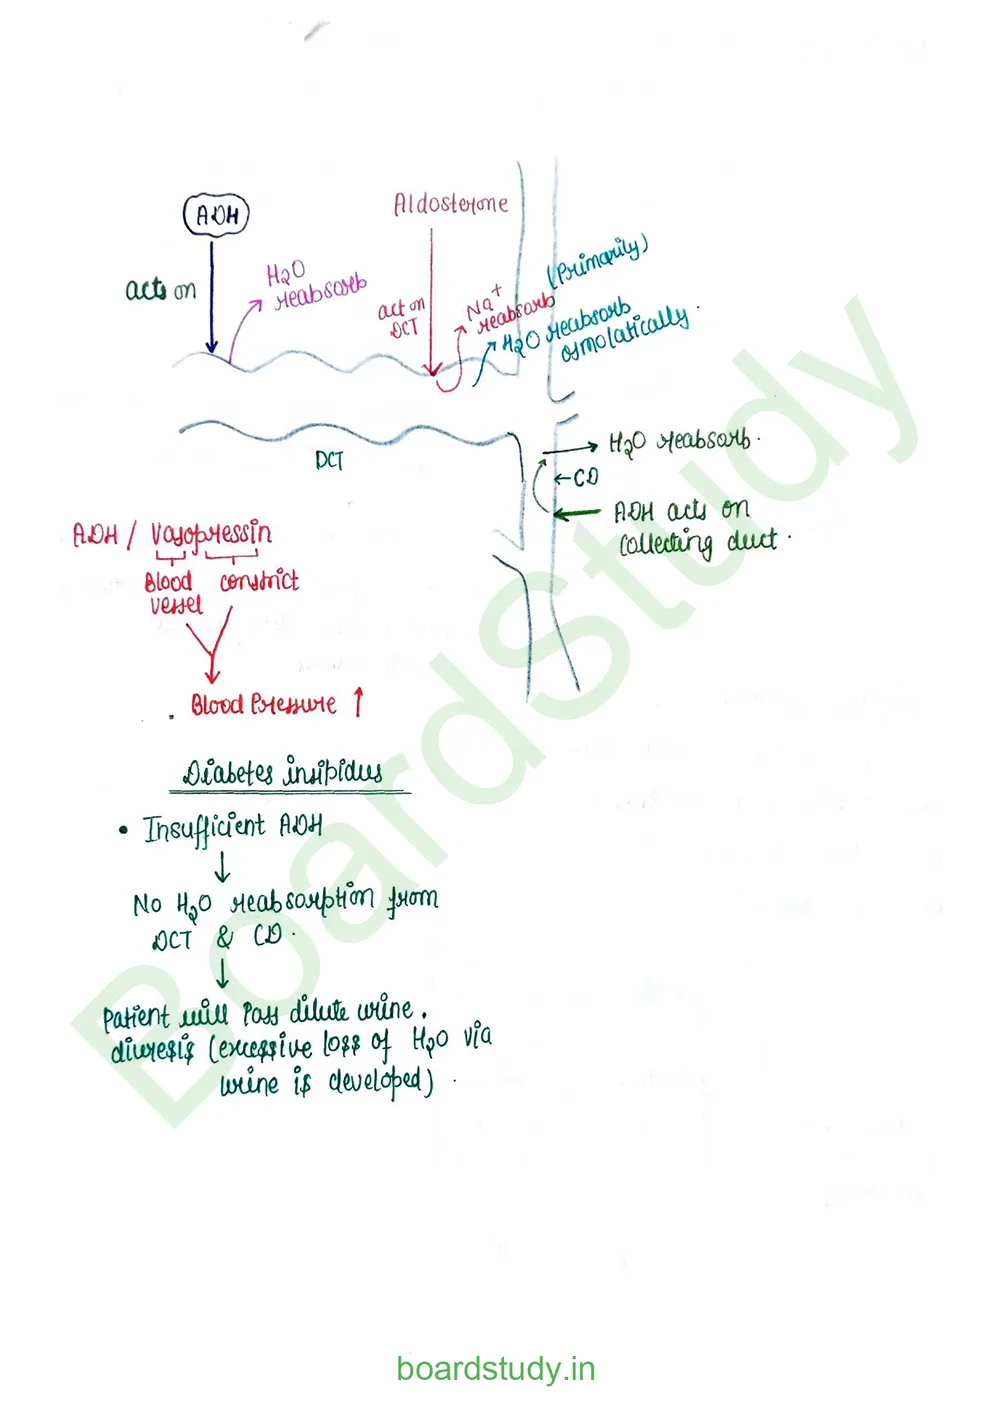 ADH
Aldosterone
acts on
H2O
reabsorb
act on
DCT
Na+
reabsorb
(Primarily)
H2O reabsorb
osmolatically.
DCT
H2O reabsorb.
←CD
ADH acts on
Collecting duct.
ADH / Vasopressin
Blood constrict
vessel
Blood Pressure ↑
Diabetes insipidus
• Insufficient ADH
↓
No H2O reabsorption from
DCT & CD.
↓
Patient will Pass dilute urine.
diuresis (excessive loss of H2O via
urine is developed).
BoardStudy
boardstudy.in